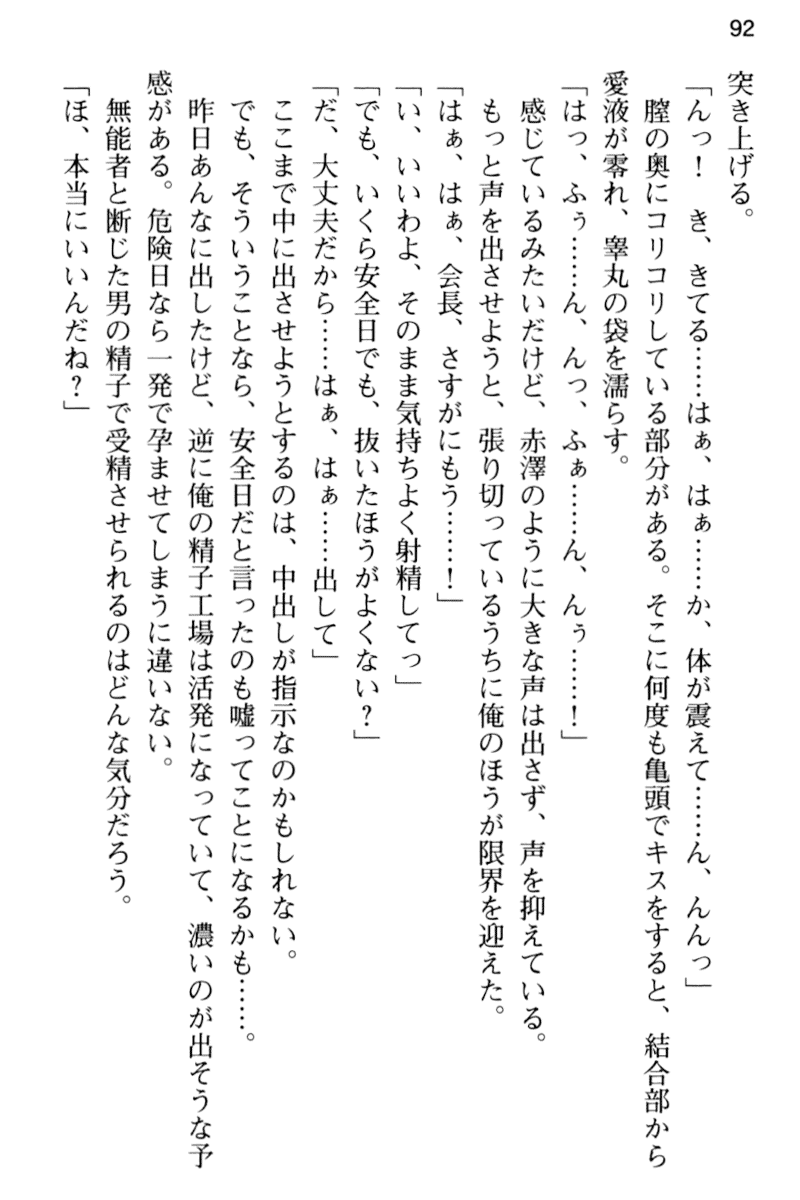 92
突き上げる。
「んっ！　き、きてる……はぁ、はぁ……か、体が震えて……ん、んんっ」
膣の奥にコリコリしている部分がある。そこに何度も亀頭でキスをすると、結合部から
愛液が零れ、睾丸の袋を濡らす。
「はっ、ふぅ……ん、んっ、ふぁ……ん、んぅ……！」
感じているみたいだけど、赤澤のように大きな声は出さず、声を抑えている。
もっと声を出させようと、張り切っているうちに俺のほうが限界を迎えた。
「はぁ、はぁ、会長、さすがにもう……！」
「い、いいわよ、そのまま気持ちよく射精してっ」
「でも、いくら安全日でも、抜いたほうがよくない？」
「だ、大丈夫だから……はぁ、はぁ……出して」
ここまで中に出させようとするのは、中出しが指示なのかもしれない。
でも、そういうことなら、安全日だと言ったのも嘘ってことになるかも……。
昨日あんなに出したけど、逆に俺の精子工場は活発になっていて、濃いのが出そうな予
感がある。危険日なら一発で孕ませてしまうに違いない。
無能者と断じた男の精子で受精させられるのはどんな気分だろう。
「ほ、本当にいいんだね？」